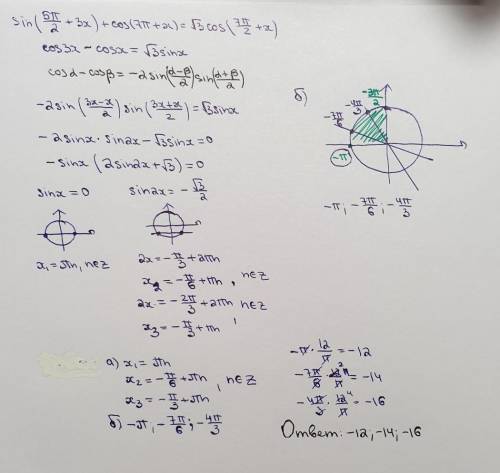 sin(5π/2 + 3x) + cos(7π + x) = √3 cos(7π/2 + x)
cos3x − cosx = √3 sinx
cosα − cosβ = −2sin(α−β/2) sin(α+β/2)
−2sin(3x−x/2) sin(3x+x/2) = √3 sinx
−2sinx · sin2x − √3 sinx = 0
−sinx (2sin2x + √3) = 0
sinx = 0
x₁ = πn, n∈Z
sin2x = −√3/2
2x = −π/3 + 2πn
x₂ = −π/6 + πn, n∈Z
2x = −2π/3 + 2πn n∈Z
x₃ = −π/3 + πn,
а) x₁ = πn
x₂ = −π/6 + πn, n∈Z
x₃ = −π/3 + πn
б) −π, −7π/6; −4π/3
б)
−3π/2
−4π/3
−7π/6
−π
−π; −7π/6; −4π/3
−π · 12/π = −12
−7π/6 · 12²/π = −14
−4π/3 · 12⁴/π = −16
Ответ: −12; −14; −16